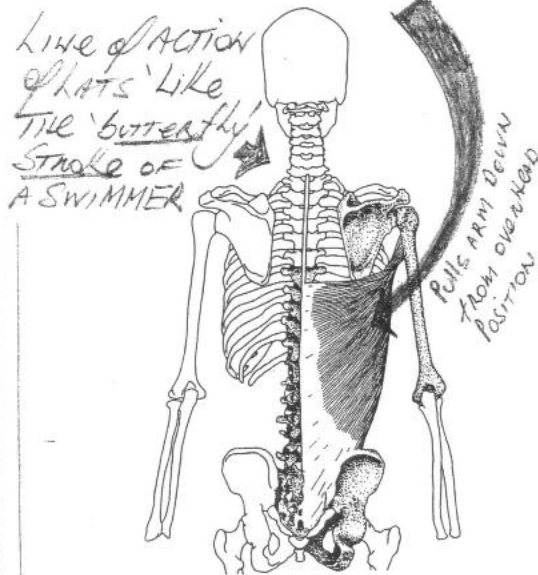 LINE of ACTION
of LATS 'Like
THE 'butterfly'
Stroke OF
A SWIMMER
Pulls ARM DOWN
from OVERHEAD
POSITION